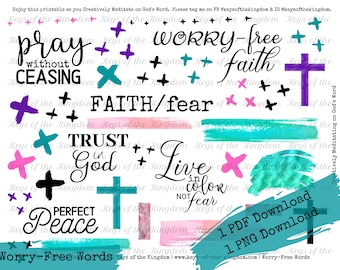 Enjoy this printable as you Creatively Meditate on God's Word. Please tag me on FB #keysofthekingdom & IG #keysofthekingdom.
pray
without
CEASING
WORRY-free
faith
FAITH/fear
TRUST
in
God
Live
in color
NOT
fear
PERFECT
Peace
1 PDF Download
1 PNG Download
Keys of the Kingdom
Creatively Meditating on God's Word
Worry-Free Words
Keys of the Kingdom | www.keysofthekingdom | Worry-Free Words